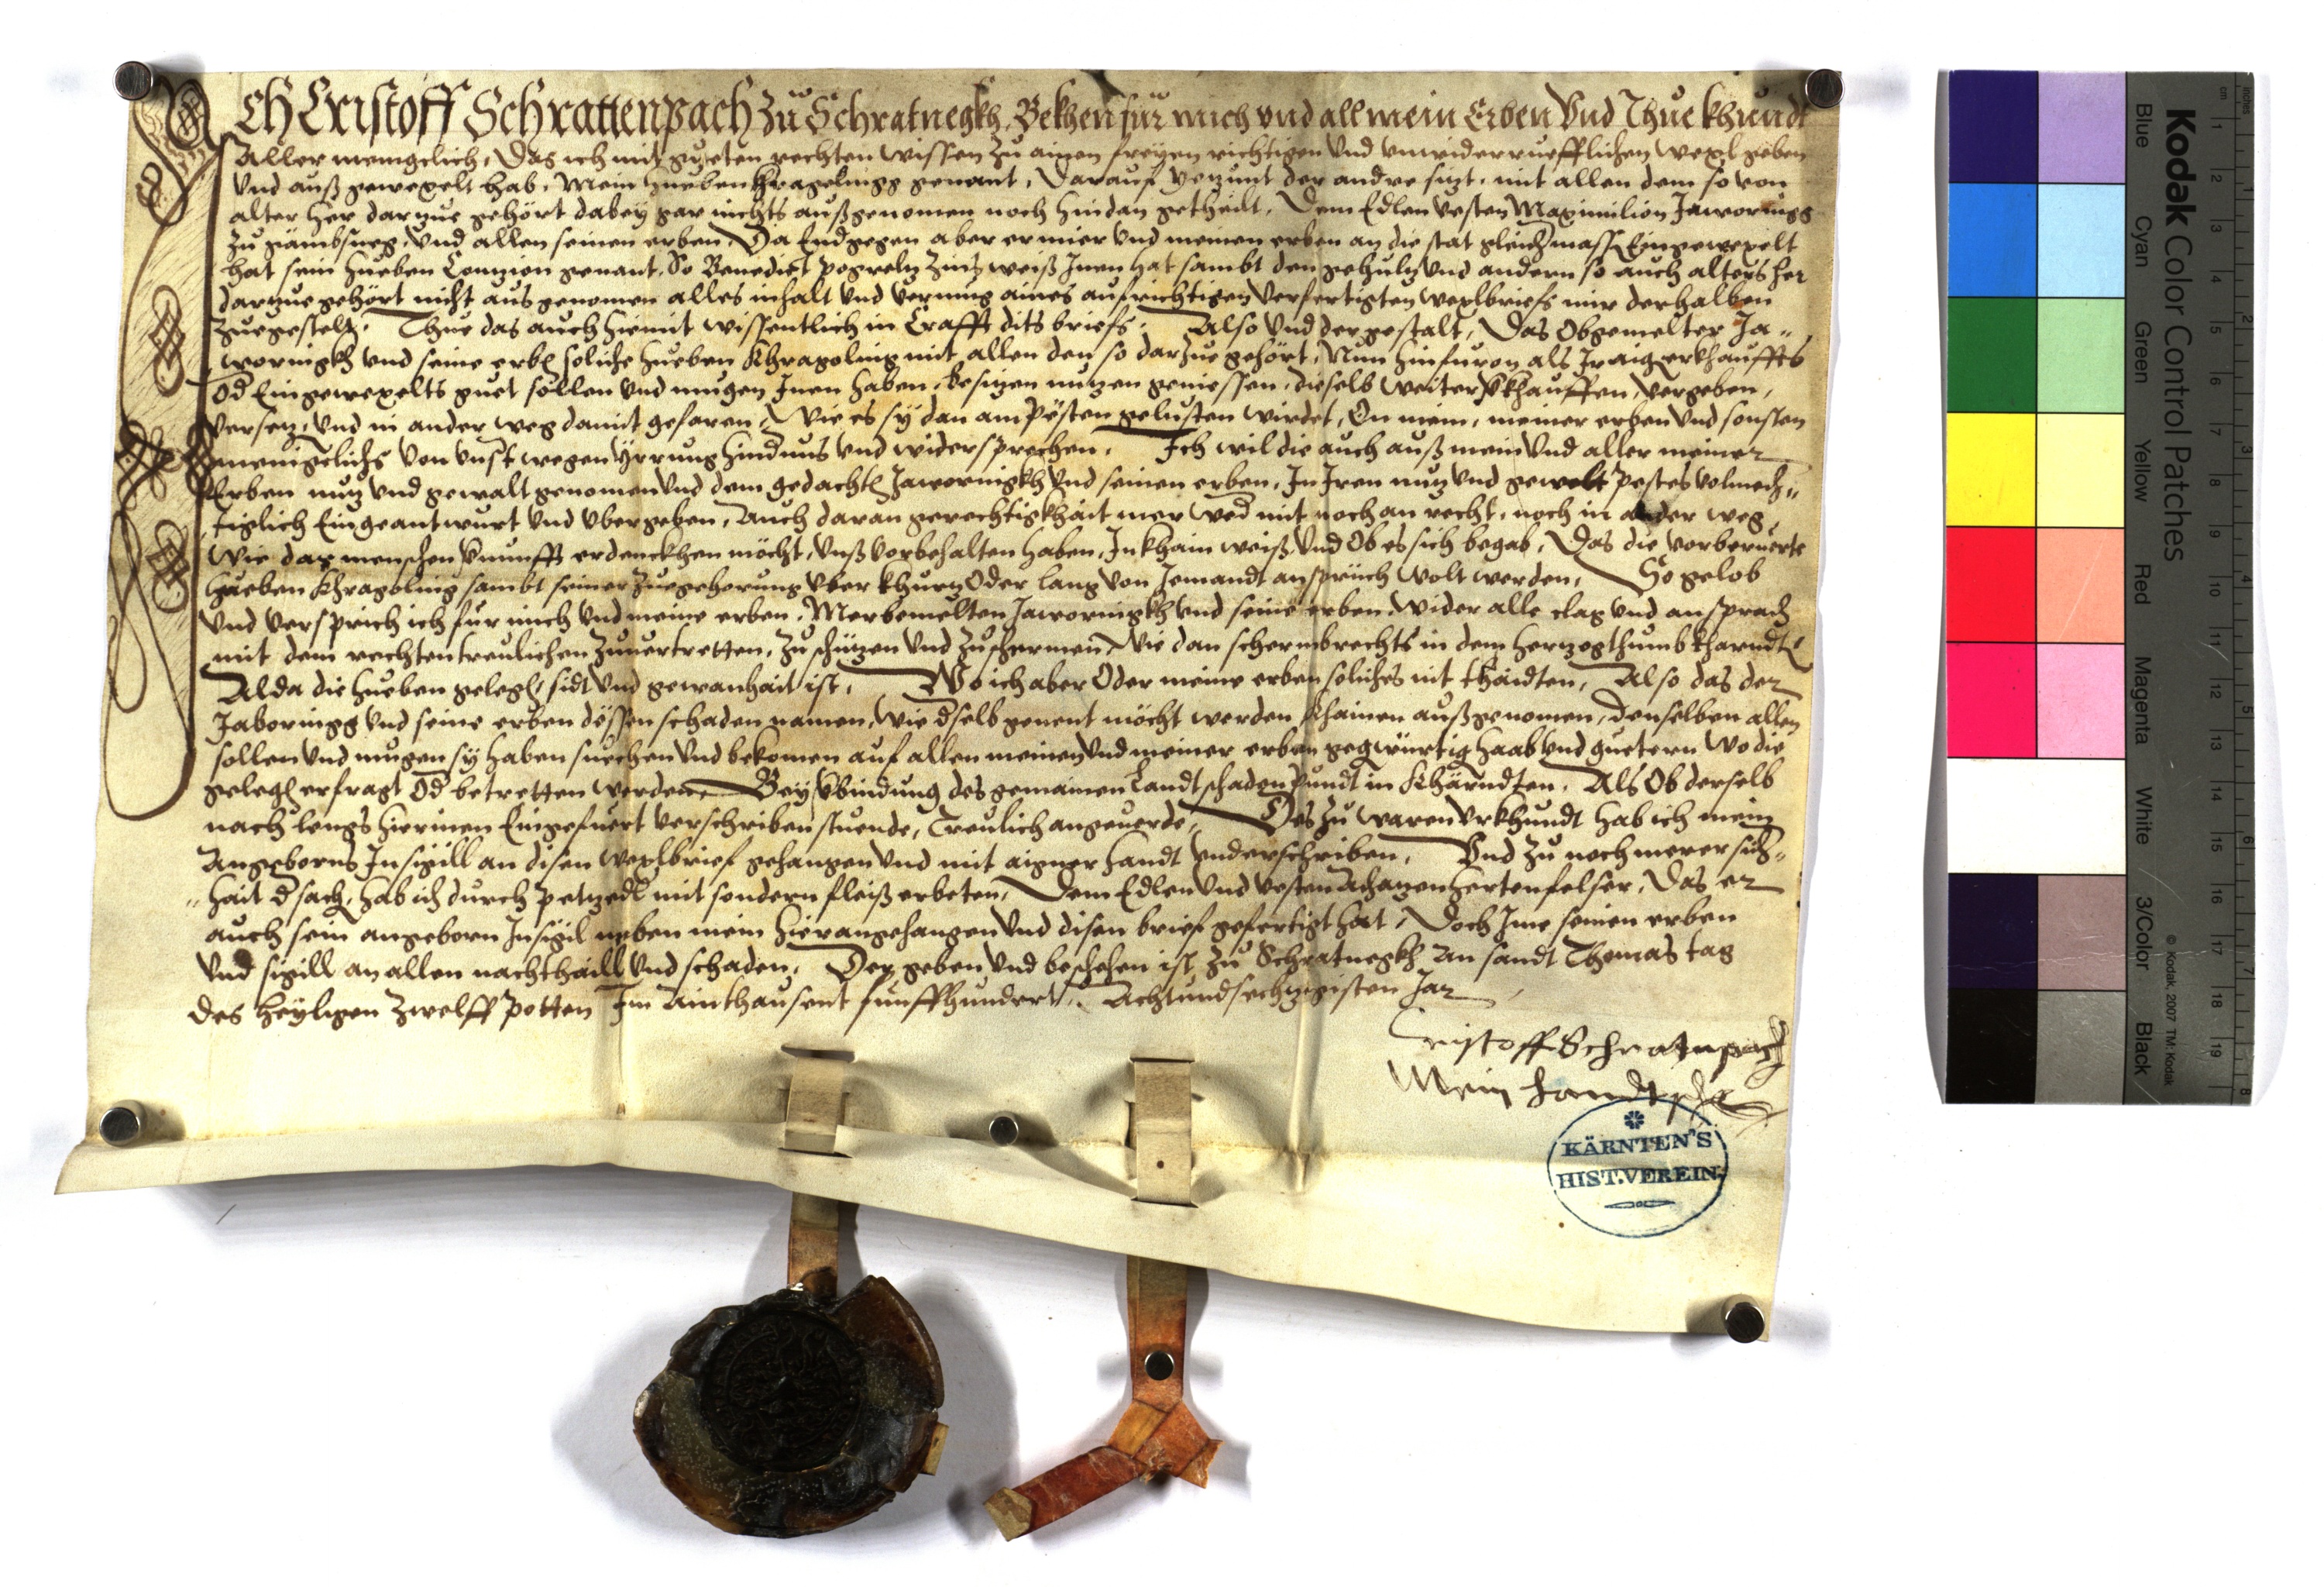 Ich Cristoff Schrattenpach zu Schratnegkh, Bekhen für mich vnd all mein Erben Vnd Thue khundt
Aller menigclich, Das ich mit gueten rechten wissen zu ainen freyen richtigen vnd vnwiderruefflichen wexl geben
vnd auß gewexelt hab, Mein hueben Khragolnigg genant, Darauf yezunt der andre sizt, mit allen dem so von
alter her darzue gehört dabey gar nichts außgenomen noch hindan getheilt, Dem Edlen vesten Maximilion Jawornigg
zu vnd allen seinen erben, Da Endgegen aber er mier vnd meinen erben an die stat gleichmassß Eingewexelt
hat sein hueben genant, So Benedict zinß weiß Innen hat sambt den gehulz vnd andern so auch alters her
darzue gehört nicht ausgenomen alles inhalt vnd vermug aines aufrichtigen verfertigten wexlbriefs mir derhalben
zuegestelt, Thue das auch hiemit wissentlich in Crafft dits briefs, Also vnd dergestalt, Das Obgemelter Ja-
wornigkh vnd seine erben soliche hueben Khragolnig mit allen den so darzue gehört, Nun hinfuron als Ir aigen erkhauffts
Od Eingewexelts guet sollen vnd mugen Inen haben, besizen nuzen geniessen, dieselb weiter vkhauffen, vergeben,
versezen, vnd in ander weg damit gefaren, Wie es sy dan am pesten gelusten wirdet, On mein, meiner erben vnd sonsten
menigclichs von vnst wegen Yrrung hindnus vnd widersprechen, Ich wil die auch auß mein vnd aller meiner
Erben nuz vnd gewalt genomen vnd dem gedachten Jawornigkh vnd seinen erben, In Iren nuz vnd gewalt pestes volmech-
tiglich Eingeantwurt vnd vbergeben, Auch daran gerechtigkhait mer wed mit noch an recht, noch in ander weg,
wie das menschen vnunfft erdenckhen möcht, vnß vorbehalten haben, In khain weiß, Vnd Ob es sich begab, Das die vorberuerte
hueben Khragolnig sambt seiner zuegehorung vber khurz Oder lang von Jemandt ansprüch wolt werden, So gelob
vnd versprich ich für mich vnd meine erben, Merbemelten Jawornigkh vnd seine erben, wider alle clag vnd ansprach
mit dem rechten treulichen zuuertretten, zu schüzen vnd zu schermen, Wie dan schermbrechts in dem herzogthumb kharndten
Alda die hueben gelegen, sidt vnd gewanhait ist, Wo ich aber Oder meine erben soliches nit thaidten, Also das der
Jabornigg vnd seine erben dessen schaden namen, wie dselb genent möcht werden Khainen außgenomen, denselben allen
sollen vnd mugen sy haben suechen vnd bekomen auf allen meinen vnd meiner erben gegwürtig haab vnd guetern wo die
gelegen erfragt Od betretten werden, Bey vbindung des gemainen Landtschadenpundt in Kharndten, Als Ob derselb
nach lengs hierinen Eingefuert verschriben stuende, Treulich angeuerde, Des zu waren vrkhundt hab ich mein
Angeborns Insigill an disen wexlbrief gehangen vnd mit aigner handt vnderschriben, Vnd zu noch merer sich-
hait d sach, hab ich durch petzedl mit sondern fleiß erbeten, Dem Edlen vnd vesten Achazen hertenfelser, Das er
auch sein angeborn Insigil neben mein hieran gehangen vnd disen brief gefertigt hat, Doch Ime seinen erben
vnd sigill an allen nachthaill vnd schaden, Der geben vnd beschehen ist, zu Schratnegkh An sandt Thomas tag
des heyligen zwelff potten Im Ainthausent funffhundert, Achtundsechzigisten Jar
Cristoff Schratnpach
Mein handtschr
KÄRNTEN'S
HIST.VEREIN.
Kodak Color Control Patches
Blue Cyan Green Yellow Red Magenta White 3/Color Black
© Kodak, 2007 TM: Kodak
cm 1 2 3 4 5 6 7 8 9 10 11 12 13 14 15 16 17 18 19
inches 1 2 3 4 5 6 7 8